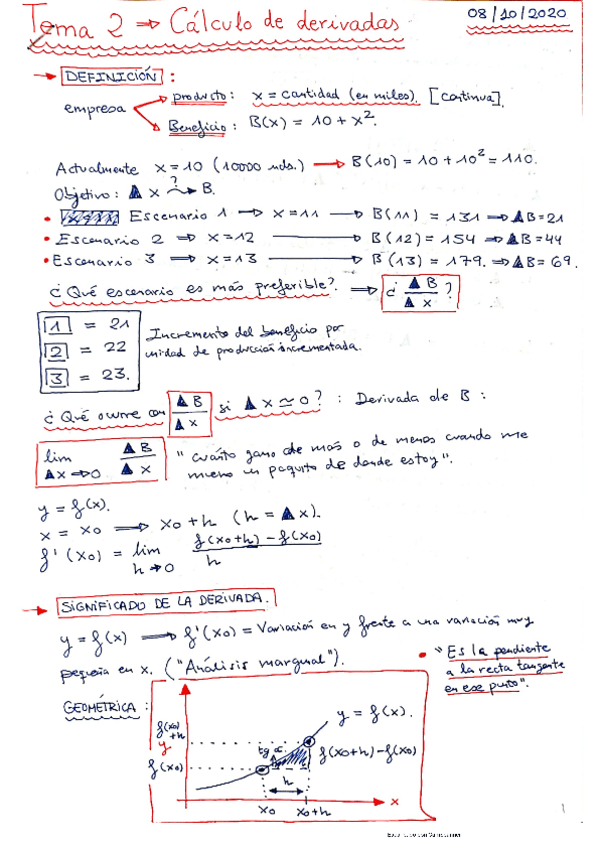 Tema 2 ⇒ Cálculo de derivadas
08/10/2020
→ DEFINICIÓN :
empresa
producto: x = cantidad (en miles). [continua].
Beneficio: B(x) = 10 + x².
Actualmente x = 10 (10000 uds.) → B(10) = 10 + 10² = 110.
Objetivo: ▲ x ?→ B.
• Escenario 1 → x = 11 → B(11) = 131 ⇒ ▲B = 21
• Escenario 2 ⇒ x = 12 → B(12) = 154 ⇒ ▲B = 44
• Escenario 3 ⇒ x = 13 → B(13) = 179. ⇒ ▲B = 69.
¿Qué escenario es más preferible? ⇒ ¿ ▲B / ▲x ?
1 = 21
2 = 22
3 = 23.
Incremento del beneficio por
unidad de producción incrementada.
¿Qué ocurre con ▲B / ▲x si ▲x ≃ 0? : Derivada de B :
lim ▲x→0 ▲B / ▲x
"cuánto gano de más o de menos cuando me
muevo un poquito de donde estoy".
y = f(x).
x = x0 ⇒ x0 + h (h = ▲x).
f'(x0) = lim h→0 f(x0+h) - f(x0) / h
→ SIGNIFICADO DE LA DERIVADA.
y = f(x) → f'(x0) = Variación en y frente a una variación muy
pequeña en x. ("Análisis marginal").
• "Es la pendiente
a la recta tangente
en ese punto".
GEOMÉTRICA :
y = f(x).
f(x0)
+h
y
tg α.
f(x0+h) - f(x0)
f(x0)
h
x
x0
x0+h
1